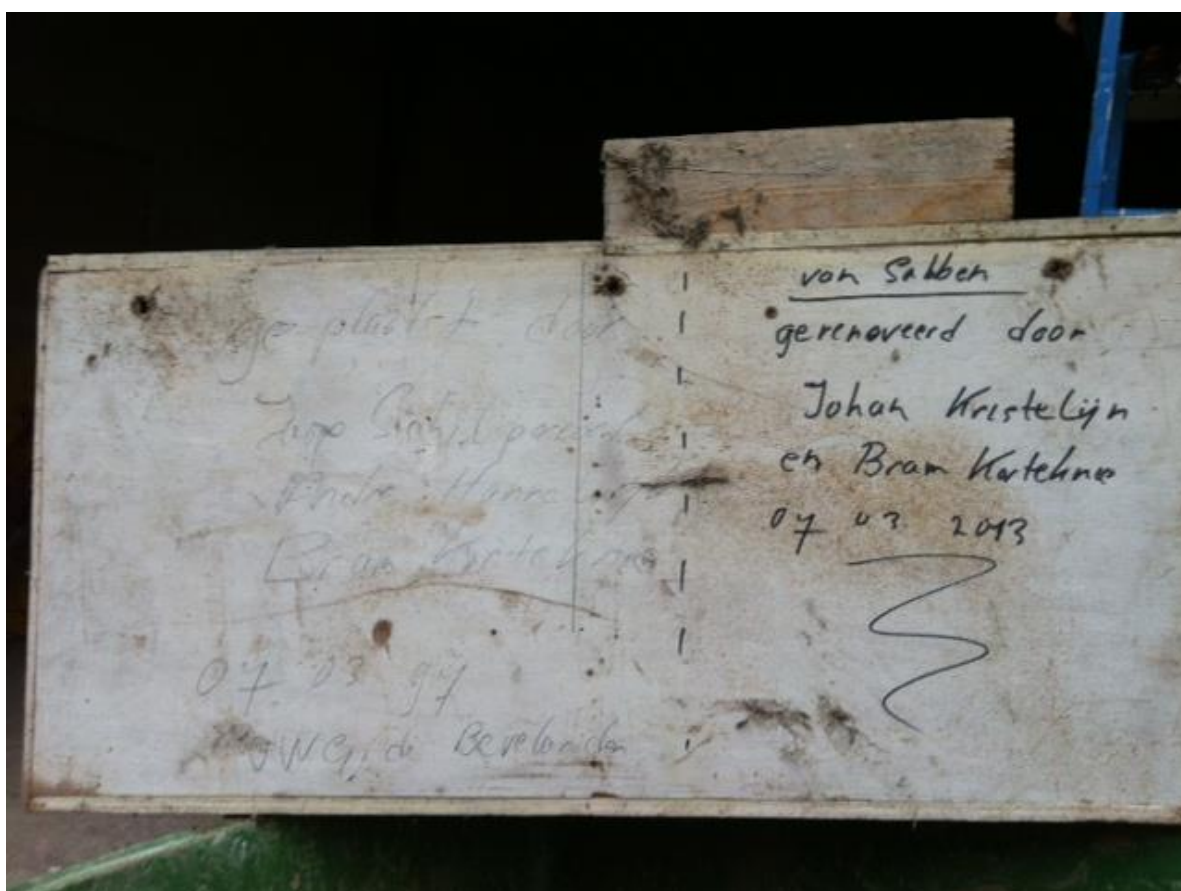 geplaatst door
Jaap
Andre
Bram Korteknie
07 03 97
VWG, de Bevelanden
van Sabben
gerenoveerd door
Johan Kristelijn
en Bram Korteknie
07 03 2013